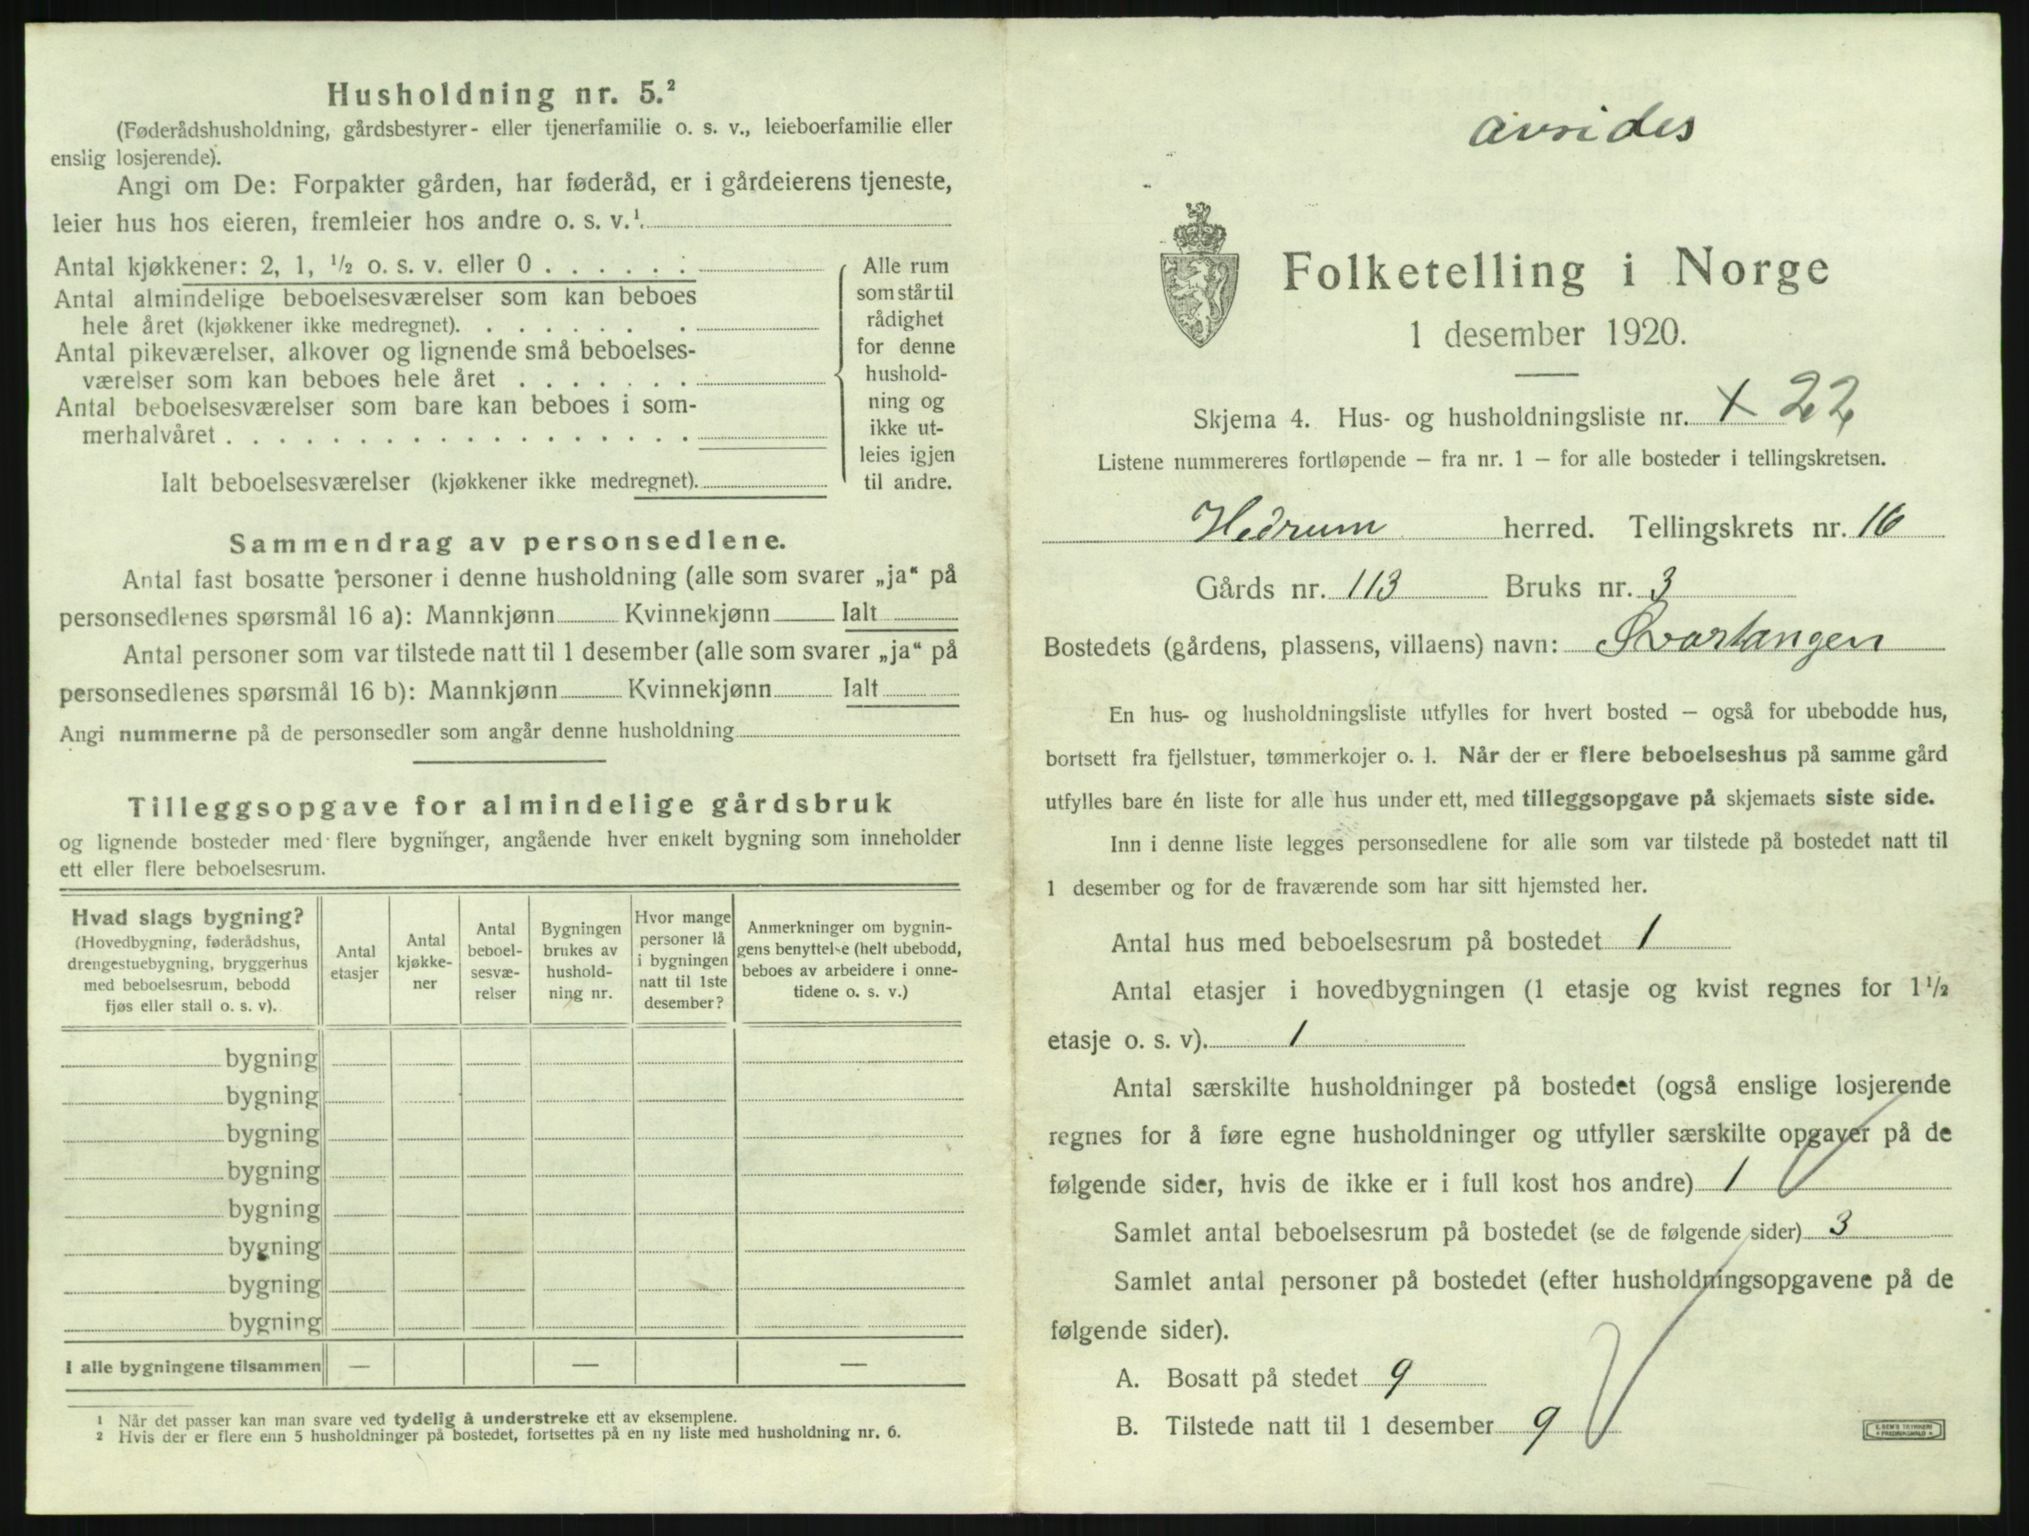 Husholdning nr. 5.²
(Føderådshusholdning, gårdsbestyrer- eller tjenerfamilie o. s. v., leieboerfamilie eller
enslig losjerende).
Angi om De: Forpakter gården, har føderåd, er i gårdeierens tjeneste,
leier hus hos eieren, fremleier hos andre o. s. v.¹.
Antal kjøkkener: 2, 1, ½ o. s. v. eller 0 . . . . . .
Antal almindelige beboelsesværelser som kan beboes
hele året (kjøkkener ikke medregnet). . . . . . . .
Antal pikeværelser, alkover og lignende små beboelses-
værelser som kan beboes hele året . . . . . . .
Antal beboelsesværelser som bare kan beboes i som-
merhalvåret . . . . . . . . . . . . . . . . . .
Ialt beboelsesværelser (kjøkkener ikke medregnet).
Alle rum
som står til
rådighet
for denne
hushold-
ning og
ikke ut-
leies igjen
til andre.
Sammendrag av personsedlene.
Antal fast bosatte personer i denne husholdning (alle som svarer „ja“ på
personsedlenes spørsmål 16 a): Mannkjønn Kvinnekjønn Ialt
Antal personer som var tilstede natt til 1 desember (alle som svarer „ja“ på
personsedlenes spørsmål 16 b): Mannkjønn Kvinnekjønn Ialt
Angi nummerne på de personsedler som angår denne husholdning
Tilleggsopgave for almindelige gårdsbruk
og lignende bosteder med flere bygninger, angående hver enkelt bygning som inneholder
ett eller flere beboelsesrum.
Hvad slags bygning?
(Hovedbygning, føderådshus,
drengestuebygning, bryggerhus
med beboelsesrum, bebodd
fjøs eller stall o. s. v).
Antal
etasjer
Antal
kjøkke-
ner
Antal
beboel-
sesvæ-
relser
Bygningen
brukes av
hushold-
ning nr.
Hvor mange
personer lå
i bygningen
natt til 1ste
desember?
Anmerkninger om bygnin-
gens benyttelse (helt ubebodd,
beboes av arbeidere i onne-
tidene o. s. v.)
bygning
bygning
bygning
bygning
bygning
bygning
bygning
bygning
I alle bygningene tilsammen — — —
¹ Når det passer kan man svare ved tydelig å understreke ett av eksemplene.
² Hvis der er flere enn 5 husholdninger på bostedet, fortsettes på en ny liste med husholdning nr. 6.
Folketelling i Norge
1 desember 1920.
Skjema 4. Hus- og husholdningsliste nr. x 22
Listene nummereres fortløpende – fra nr. 1 – for alle bosteder i tellingskretsen.
Hedrum herred. Tellingskrets nr. 16
Gårds nr. 113 Bruks nr. 3
Bostedets (gårdens, plassens, villaens) navn: Svartangen
En hus- og husholdningsliste utfylles for hvert bosted – også for ubebodde hus,
bortsett fra fjellstuer, tømmerkojer o. l. Når der er flere beboelseshus på samme gård
utfylles bare én liste for alle hus under ett, med tilleggsopgave på skjemaets siste side.
Inn i denne liste legges personsedlene for alle som var tilstede på bostedet natt til
1 desember og for de fraværende som har sitt hjemsted her.
Antal hus med beboelsesrum på bostedet 1
Antal etasjer i hovedbygningen (1 etasje og kvist regnes for 1½
etasje o. s. v). 1
Antal særskilte husholdninger på bostedet (også enslige losjerende
regnes for å føre egne husholdninger og utfyller særskilte opgaver på de
følgende sider, hvis de ikke er i full kost hos andre) 1
Samlet antal beboelsesrum på bostedet (se de følgende sider) 3
Samlet antal personer på bostedet (efter husholdningsopgavene på de
følgende sider).
A. Bosatt på stedet 9
B. Tilstede natt til 1 desember 9